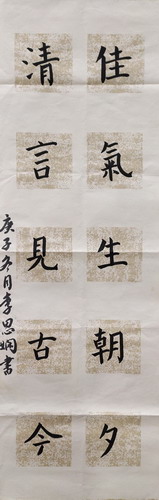 佳氣生朝夕
清言見古今
庚子冬月李思嫻書